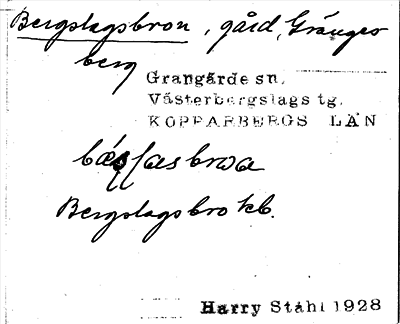 Bergslagsbron, gård, Gränges
berg
Grangärde sn.
Västerbergslags tg.
KOPPARBERGS LÄN
Bergslagsbro kb.
Harry Ståhl 1928